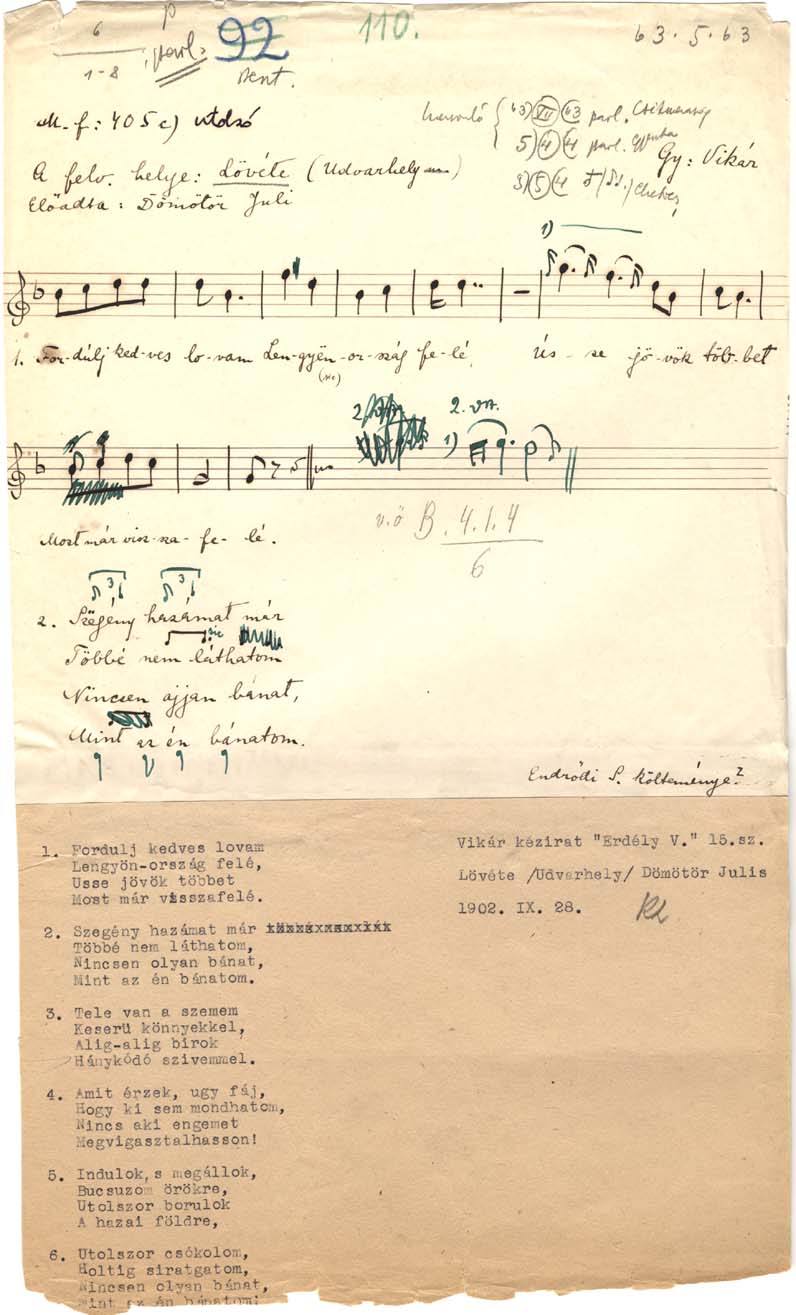 6
p
1-8
parl.
92
110.
63.5.63
M.f: 405 c) utolsó
63) VII 63 parl.
5) 4 4 parl.
A felv. helye: Lövéte (Udvarhely m.)
Gy: Vikár
Előadta: Dömötör Juli
1)
1. For-dúlj ked-ves lo-vam Len-gyën-or-szág fe-lé, Üs-se jö-vök töb-bet
(sic)
2. vsz.
1)
Most már visz-sza-fe-lé.
v.ö B. 4.1.4
6
3 3
2. Szëgény hazámat már
sic
Többé nem láthatom
Nincsen ajjan bánat,
Mint az én bánatom.
Endrődi S. költeménye?
1. Fordulj kedves lovam
Lengyön-ország felé,
Usse jövök többet
Most már visszafelé.
Vikár kézirat "Erdély V." 15.sz.
Lövéte /Udvarhely/ Dömötör Julis
1902. IX. 28.
2. Szegény hazámat már
Többé nem láthatom,
Nincsen olyan bánat,
Mint az én bánatom.
3. Tele van a szemem
Keserü könnyekkel,
Alig-alig birok
Hánykódó szivemmel.
4. Amit érzek, ugy fáj,
Hogy ki sem mondhatom,
Nincs aki engemet
Megvigasztalhasson!
5. Indulok, s megállok,
Bucsuzom örökre,
Utolszor borulok
A hazai földre,
6. Utolszor csókolom,
Holtig siratgatom,
Nincsen olyan bánat,
Mint az én bánatom!